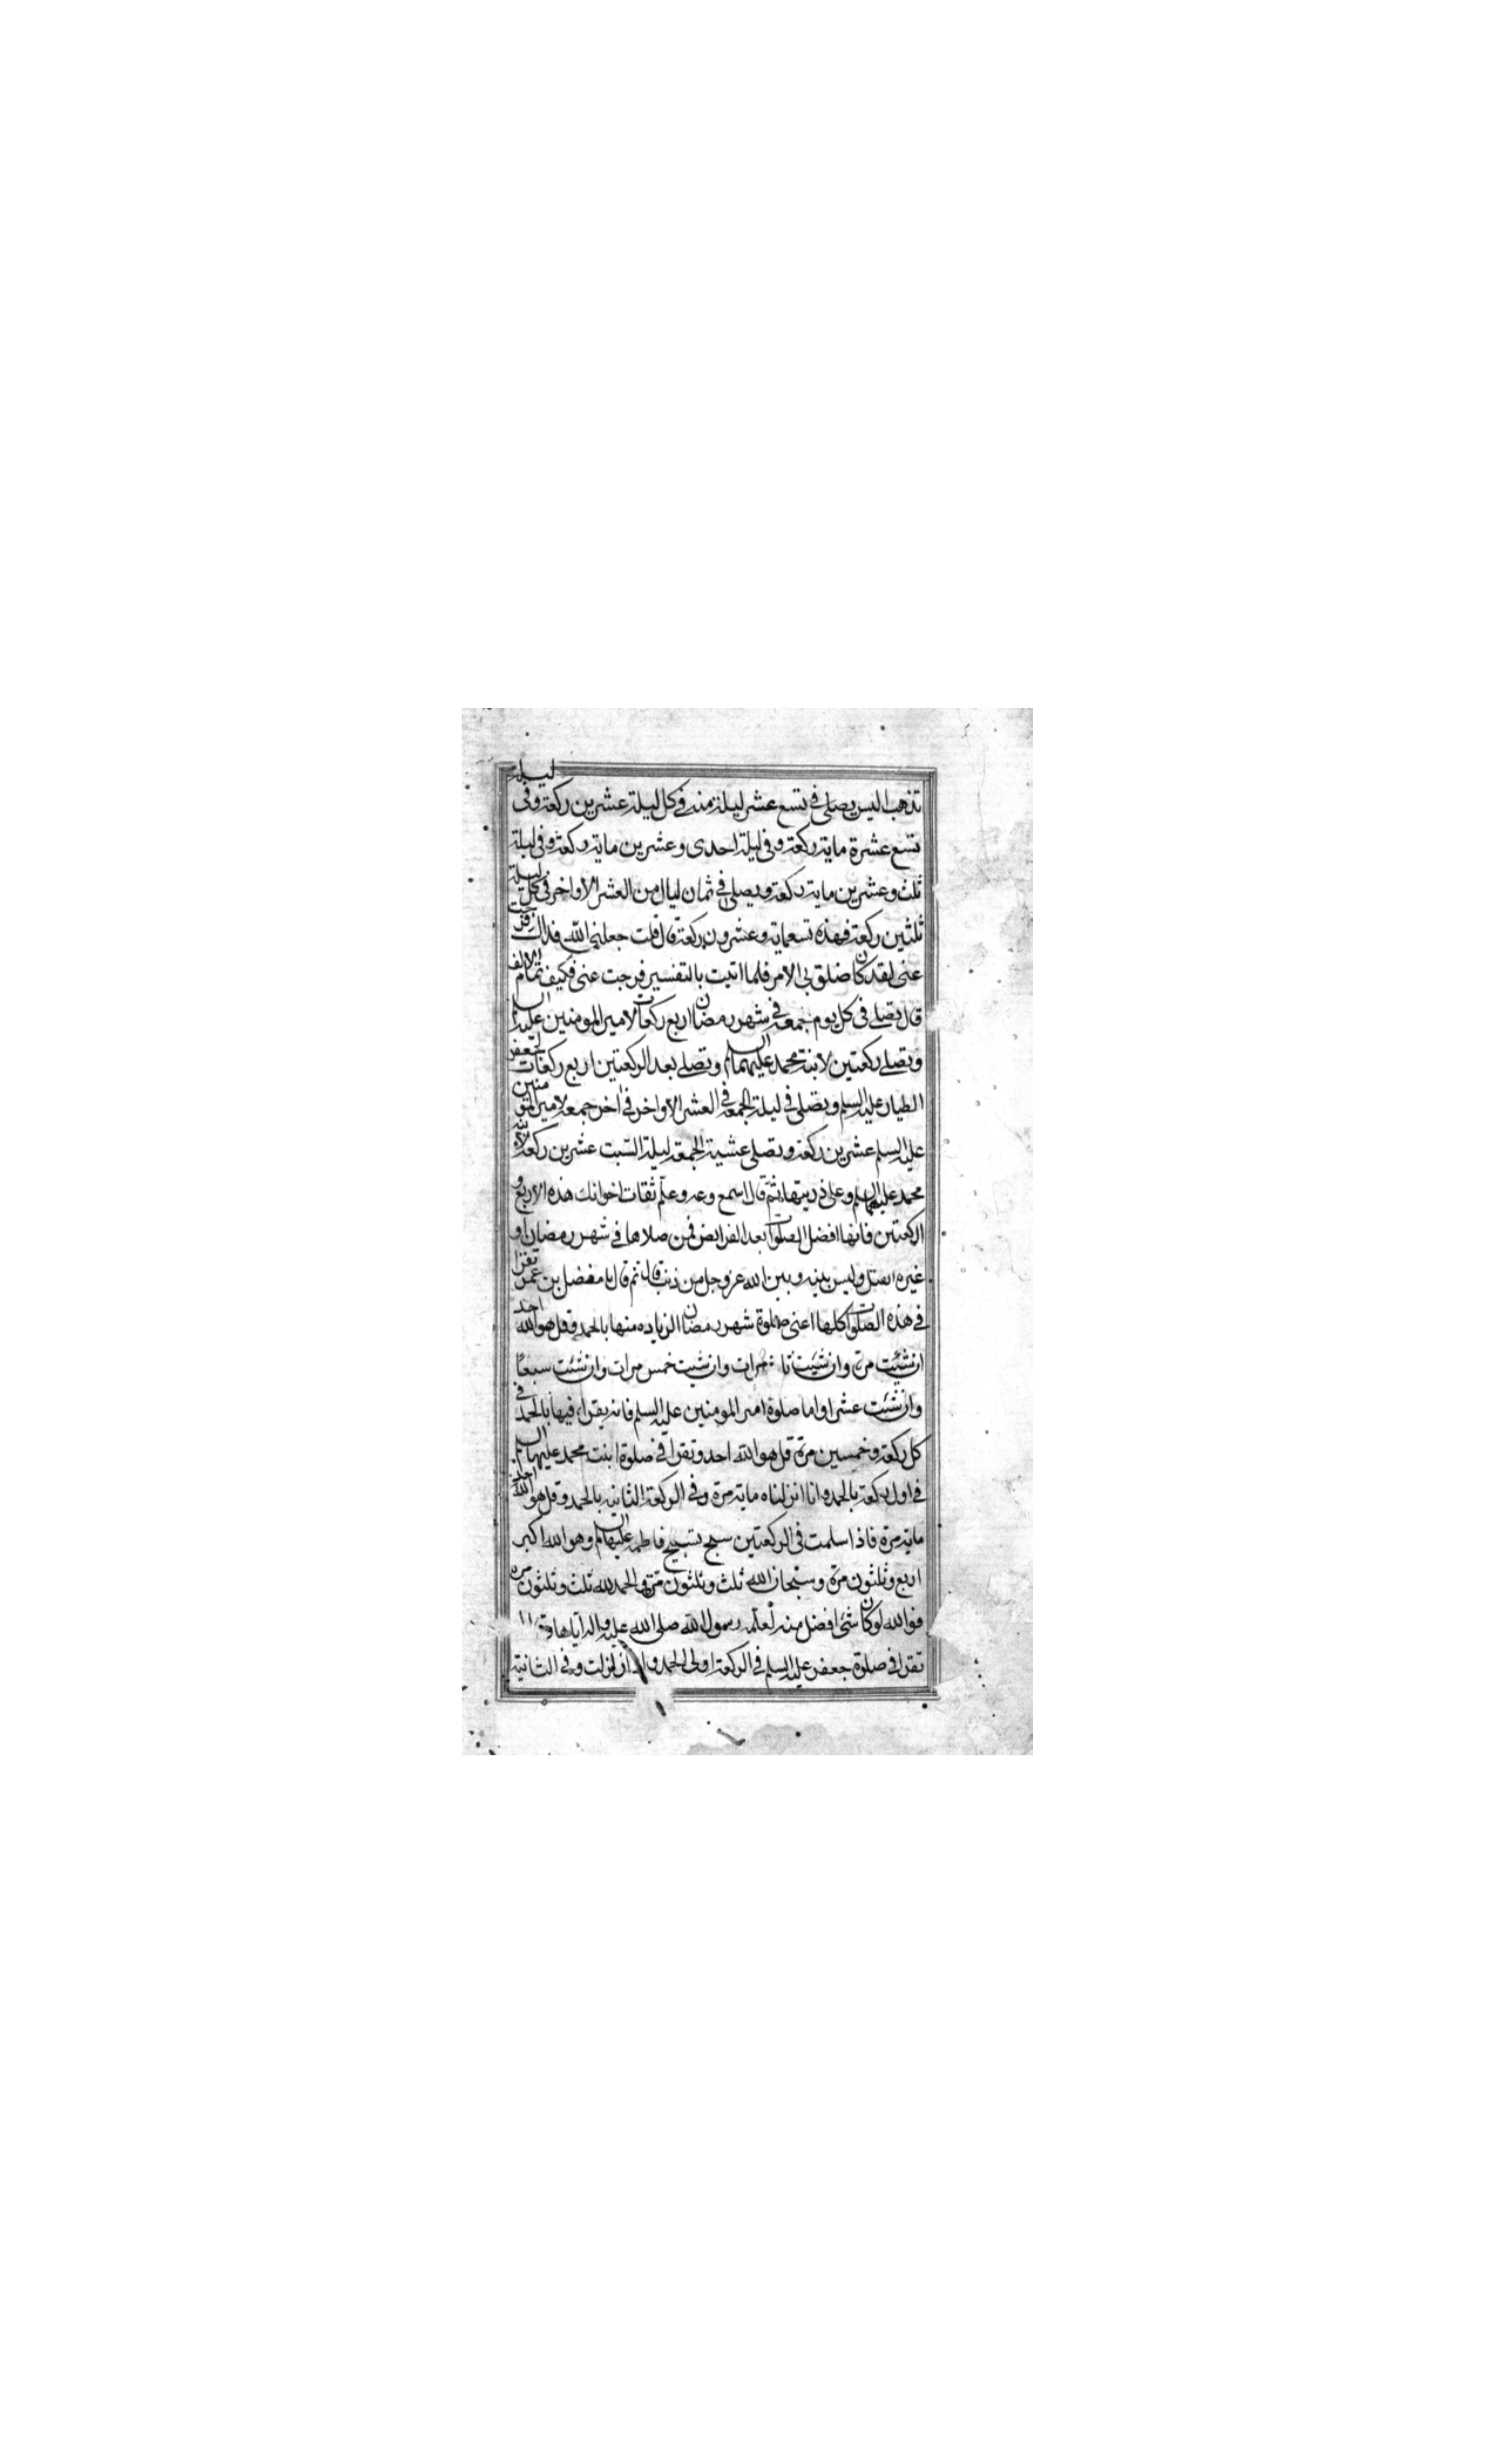 تذهب اليس يصلى في تسع عشر ليلة منه في كل ليلة عشرين ركعة وفى ليلة
تسع عشرة ماية ركعة وفى ليلة احدى وعشرين ماية ركعة وفى ليلة
ثلث وعشرين ماية ركعة ويصلى في ثمان ليال من العشر الاواخر فى كل ليلة
ثلثين ركعة فهذه تسعماية وعشرون ركعة قال قلت جعلنى الله فداك فرجت
عنى لقد كان ضلق بى الامر فلما اتيت بالتفسير فرجت عنى فكيف تمام الالف
قال تصلى فى كل يوم جمعة في شهر رمضان اربع ركعات لامير المومنين عليه السلم
وتصلى ركعتين لابنة محمد عليهما السلم وتصلى بعد الركعتين اربع ركعات لجعفر
الطيار عليه السلم وتصلى في ليلة الجمعة في العشر الاواخر في اخر جمعة لامير المومنين
عليه السلم عشرين ركعة وتصلى عشية الجمعة ليلة السبت عشرين ركعة لابنة
محمد عليهما السلم وعلى ذريتها ثم قال اسمع وعه وعلم ثقات اخوانك هذه الاربع و
الركعتين فانها افضل الصلوات بعد الفرايض فمن صلاها في شهر رمضان او
غيره انفتل وليس بينه وبين الله عز وجل من ذنب قال ثم قال يا مفضل بن عمر تقرا
في هذه الصلوات كلها اعنى صلوة شهر رمضان الزياده منها بالحمد وقل هو الله احد
ان شئت مرة وان شئت ثلث مرات وان شئت خمس مرات وان شئت سبعًا
وان شئت عشرا واما صلوة امير المومنين عليه السلم فانه يقراء فيها بالحمد فى
كل ركعة وخمسين مرة قل هو الله احد وتقرا فى صلوة ابنت محمد عليهما السلم
في اول ركعة بالحمد وانا انزلناه ماية مرة وفى الركعة الثانيه بالحمد وقل هو الله احد
ماية مرة فاذا سلمت فى الركعتين سبح تسبيح فاطمة عليها السلم وهو الله اكبر
اربع وثلثون مرة وسبحان الله ثلث وثلثون مرة والحمد لله ثلث وثلثون مره
فوالله لو كان شئ افضل منه لعلمه رسول الله صلى الله عليه واله اياها و
تقرا في صلوة جعفر عليه السلم في الركعة اولى الحمد واذا زلزلت وفى الثانية